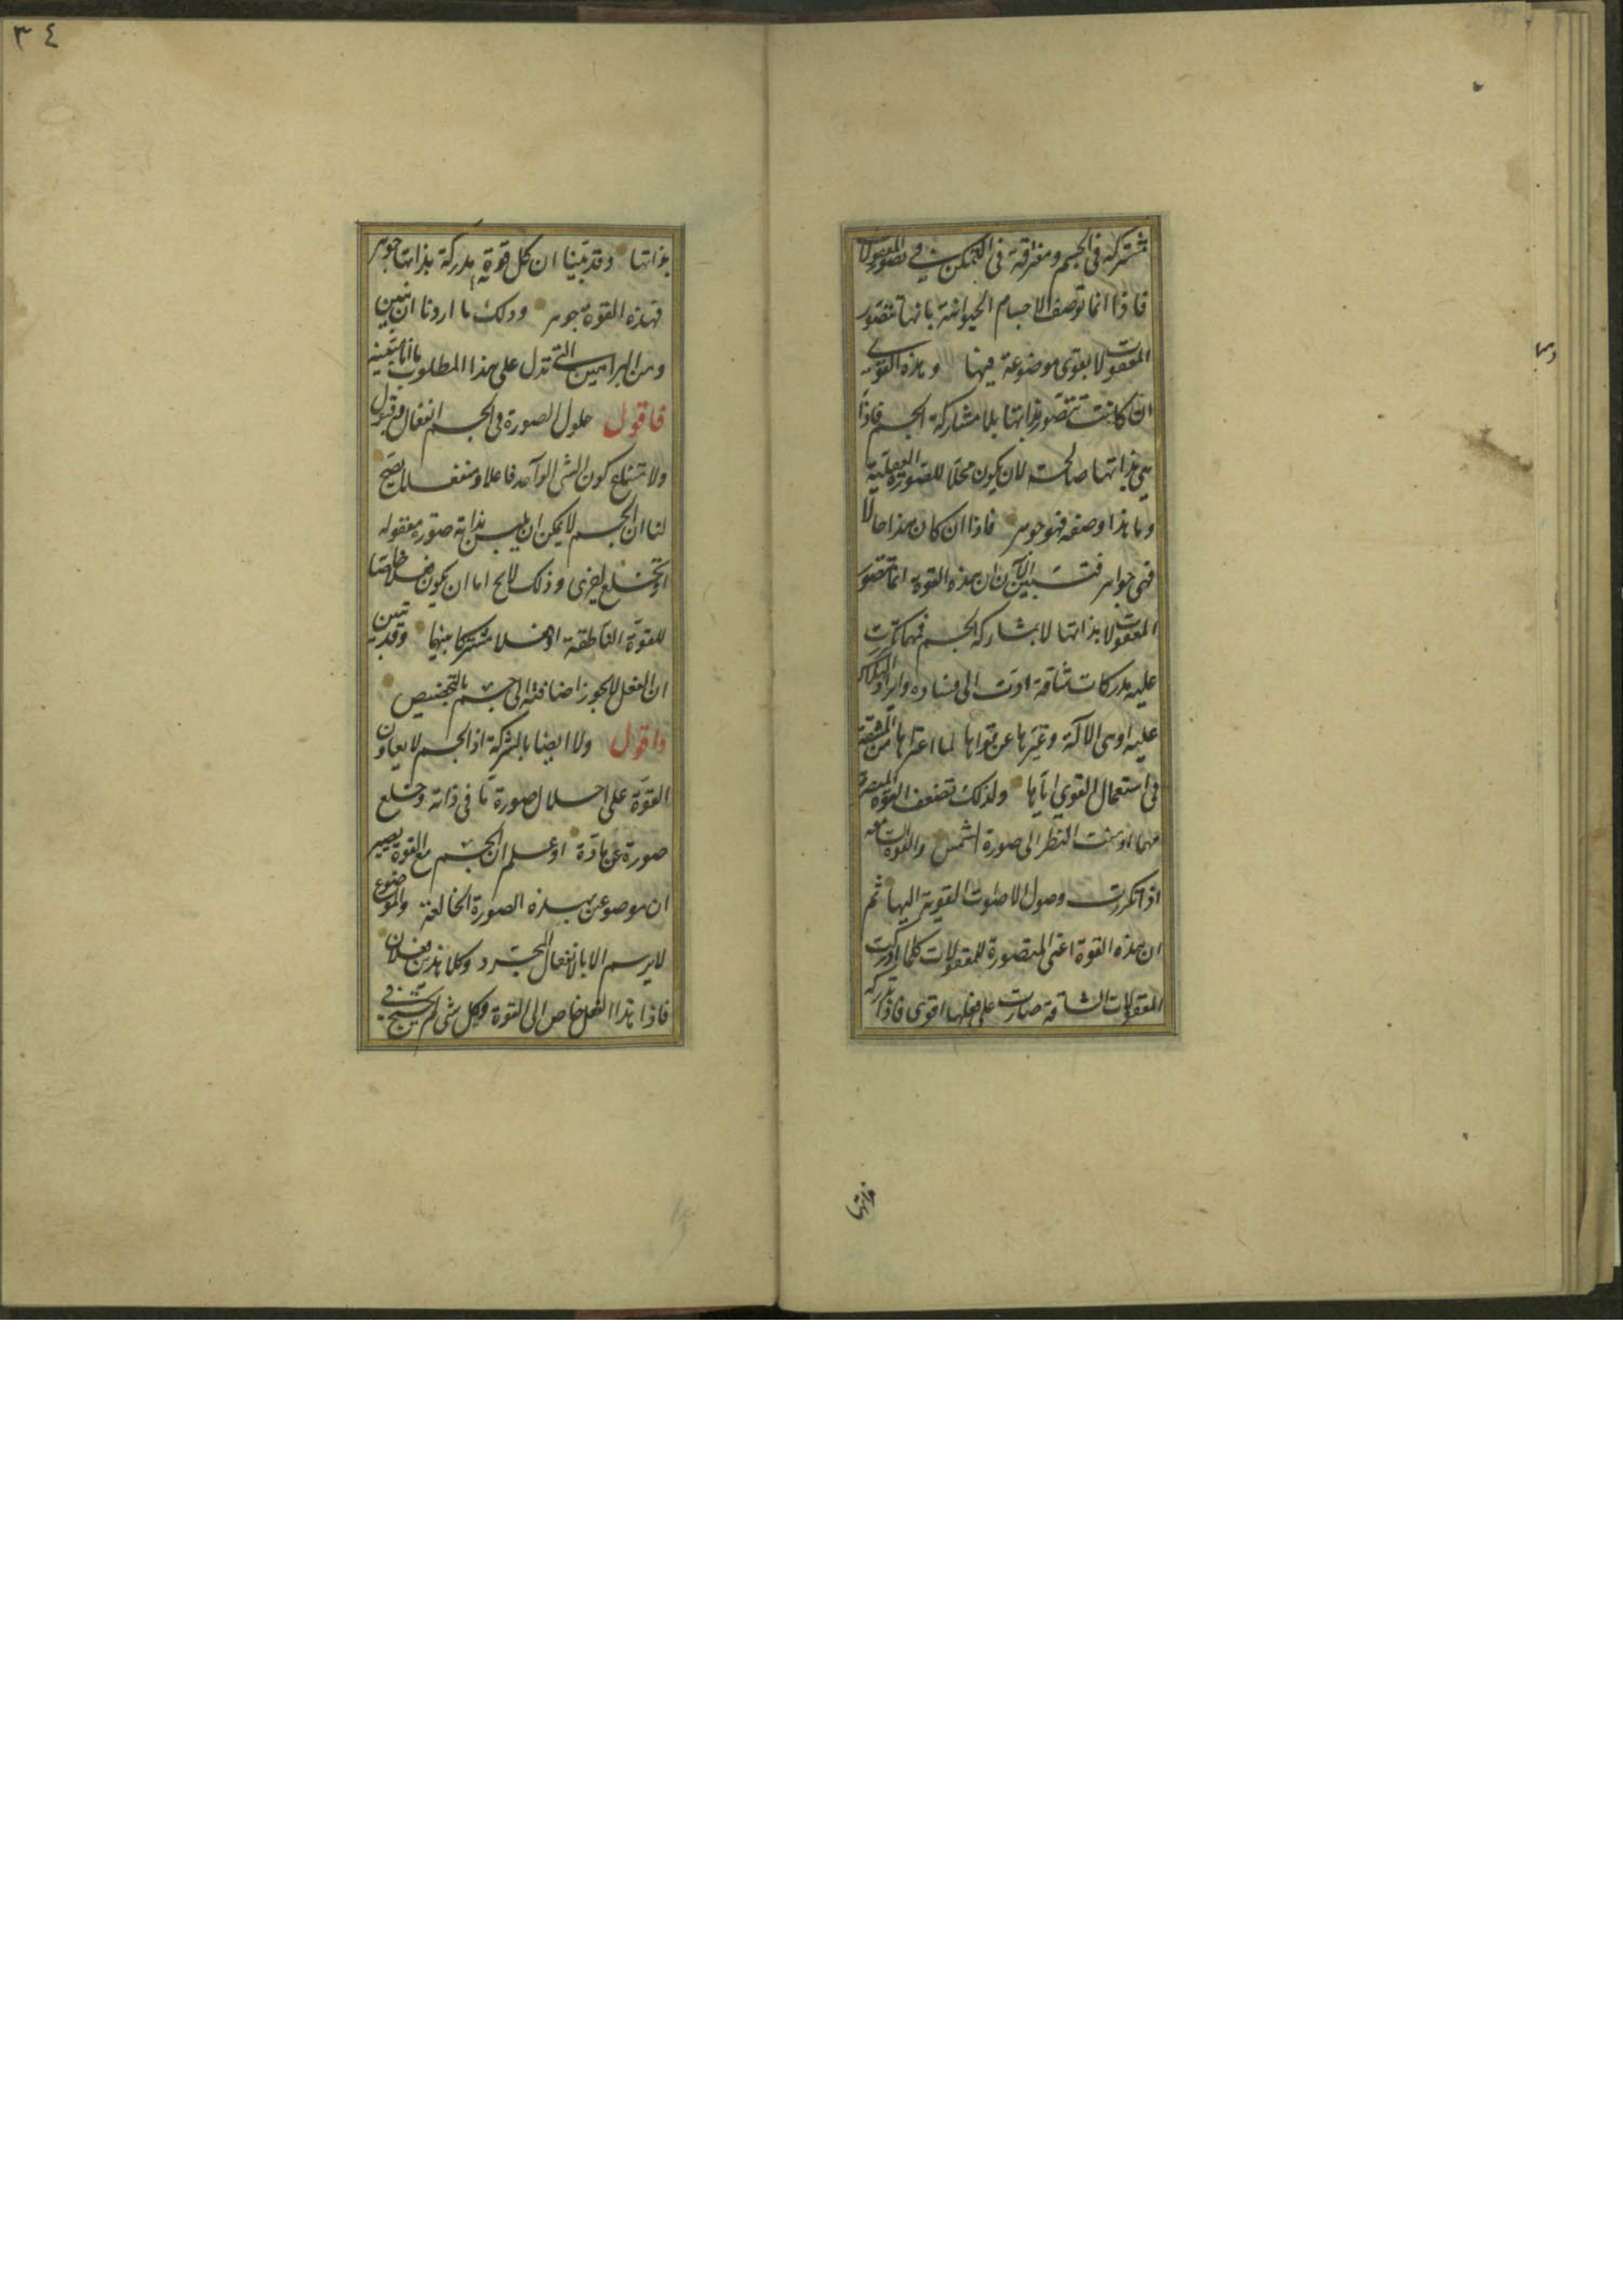 مشتركة فى الجسم ومفترقة فى التمكن فى تصور المعقولات
فاذا انما توصف الاجسام الحيوانية بانها تتصور
المعقولات لا بقوى موضوعة فيها وهذه القوى
ان كانت تتصور بذاتها بلا مشاركة الجسم فاذا
هى بذاتها صالحة لان يكون محلا للصورة العقلية
وما هذا وصفه فهو جوهر فاذا ان كان هذا حالا
فهى جواهر فتبين الآن ان هذه القوة انما تتصور
المعقولات بذاتها لا بمشاركة الجسم فمهما تكررت
عليه مدركات شاقة ادت الى فساده وايراد الهلاك
عليه اوهى الآلة وغيرها عن قواها لما اعتراها من المشقة
فى استعمال القوى اياها ولذلك تضعف القوة المبصرة
مهما ادمنت النظر الى صورة الشمس والقوة
اذا تكررت وصول الاصوات القوية اليها ثم
ان هذه القوة اعنى المتصورة للمعقولات كلما ادركت
المعقولات الشاقة صارت على فعلها اقوى فاذا تدركه
ذاتها
٣٤
بذاتها وقد بينا ان كل قوة مدركة بذاتها جوهر
فهذه القوة جوهر وذلك ما اردنا ان نبين
ومن البراهين التى تدل على هذا المطلوب ما انا مبينه
فاقول حلول الصورة فى الجسم انفعال وقبول
ولا متناع كون الشى الواحد فاعلا ومنفعلا يصح
لنا ان الجسم لا يمكن ان يلبس بذاته صورة معقولة
او تخلع اخرى وذلك لا يح اما ان يكون فعلا خاصا
للقوة الناطقة او فعلا مشتركا بينهما وقد تبين
ان الفعل لا يجوز اضافته الى جسم بالتخصيص
واقول ولا ايضا بالشركة اذ الجسم لا يعاون
القوة على احلال صورة ما فى ذاته وخلع
صورة عن مادة او علم ان الجسم مع القوة يصير
ان موضوعين بهذه الصورة الخالعة والموضوع
لا يرسم الا بالانفعال المجرد وكلا هذين فعلان
فاذا هذا الفعل خاص الى القوة وكل شى لم يحتج فى